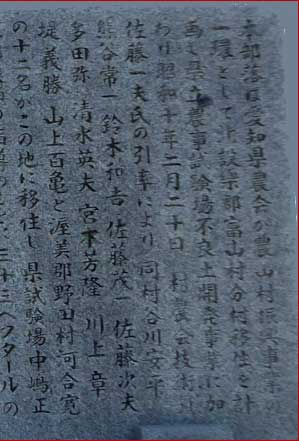 本部落は愛知県農会が農山村振興事業の
一環として北設楽郡富山村分村移住を計
画し県立農事試験場不良土開発事業に加
わり昭和十年二月二十日 村農会技術員
佐藤一夫氏の引率により同村谷川安平
熊谷常一 鈴木和吉 佐藤茂一 佐藤次夫
多田弥 清水英夫 宮下芳隆 川上章
堤義勝 山上百亀と渥美郡野田村河合寛
の十二名がこの地に移住し 県試験場中嶋正
三十三ヘクタールの